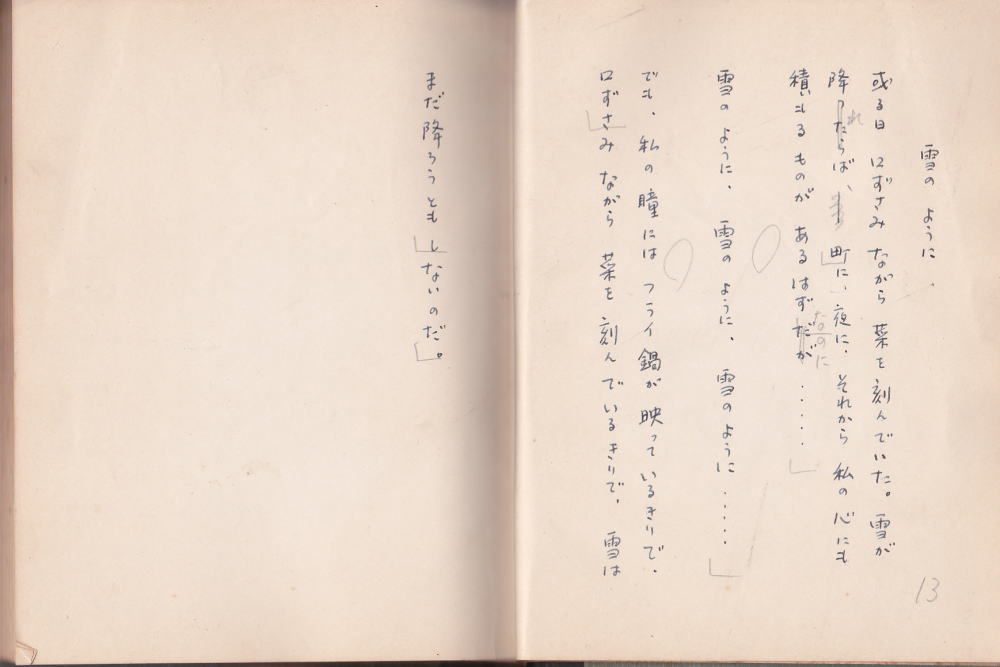 雪の ように
或る日 口ずさみ ながら 菜を 刻んでいた。雪が
降ったらば、 町に、夜に、それから 私の 心にも
れ
積もる ものが あるはずだが ‥‥‥
なのに
雪の ように、 雪の ように、 雪のように ‥‥‥
でも、私の 瞳には フライ鍋が 映って いるきりで、
口ずさみ ながら 菜を 刻んで いるきりで、 雪は
13
まだ 降ろうとも しないのだ。